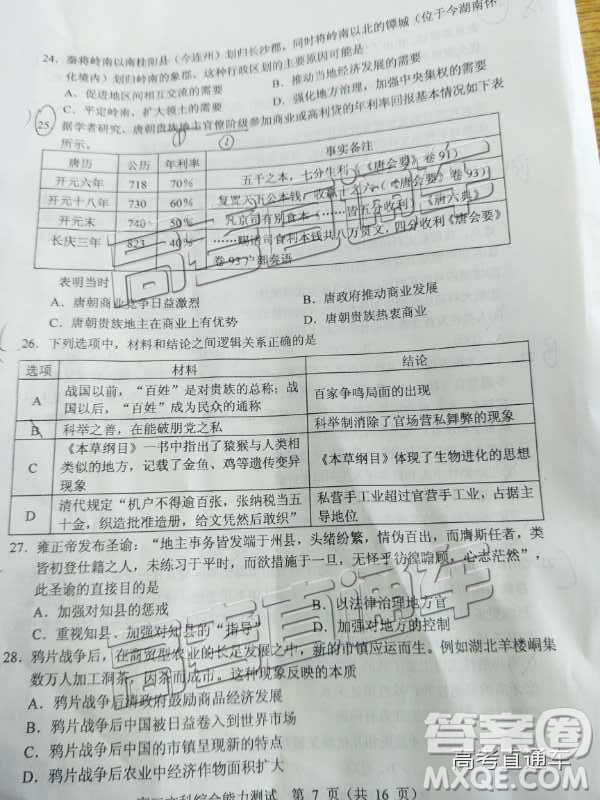 24. 秦将岭南以南桂阳县（今连州）划归长沙郡，同时将岭南以北的镡城（位于今湖南怀
化境内）划归岭南的象郡。这种行政区划的主要原因可能是
A. 促进地区间相互交流的需要 B. 推动当地经济发展的需要
C. 平定岭南、扩大领土的需要 D. 强化地方治理，加强中央集权的需要
25. 据学者研究，唐朝贵族地主官僚阶级参加商业或高利贷的年利率回报基本情况如下表
所示。
唐历 公历 年利率 事实备注
开元六年 718 70% 五千之本，七分生利（《唐会要》卷 91）
开元十八年 730 60% 复置天下公本钱，收赢十之六（《唐会要》卷 93）
开元末 740 50% 凡京司有别食本（……皆五分收利）《唐六典》
长庆三年 823 40% ……赐诸司食利本钱共八万贯文，四分收利《唐会要》
卷 93
表明当时
A. 唐朝商业竞争日益激烈 B. 唐政府推动商业发展
C. 唐朝贵族地主在商业上有优势 D. 唐朝贵族热衷商业
26. 下列选项中，材料和结论之间逻辑关系正确的是
选项 材料 结论
A 战国以前，“百姓”是对贵族的总称；战
国以后，“百姓”成为民众的通称 百家争鸣局面的出现
B 科举之善，在能破朋党之私 科举制消除了官场营私舞弊的现象
C 《本草纲目》一书中指出了猿猴与人类相
类似的地方，记载了金鱼、鸡等遗传变异
现象 《本草纲目》体现了生物进化的思想
D 清代规定“机户不得逾百张，张纳税当五
十金，织造批准造册，给文凭然后敢织” 私营手工业超过官营手工业，占据主
导地位
27. 雍正帝发布圣谕：“地主事务皆发端于州县，头绪纷繁，情伪百出，而膺斯任者，类
皆初登仕籍之人，未练习于平时，而欲措施于一旦，无怪乎彷徨瞻顾，心志茫然”，
此圣谕的直接目的是
A. 加强对知县的惩戒 B. 以法律治理地方官
C. 重视知县、加强对知县的“指导” D. 加强对地方的控制
28. 鸦片战争后，在商贸型农业的长足发展之中，新的市镇应运而生。例如湖北羊楼峒集
数万人加工洞茶，因茶而成市。这种现象反映的本质
A. 鸦片战争后清政府鼓励商品经济发展
B. 鸦片战争后中国被日益卷入到世界市场
C. 鸦片战争后中国的市镇呈现新的特点
D. 鸦片战争后农业中经济作物面积扩大
文科综合能力测试 第 7 页（共 16 页）
高考直通车
答案圈
高考直通车